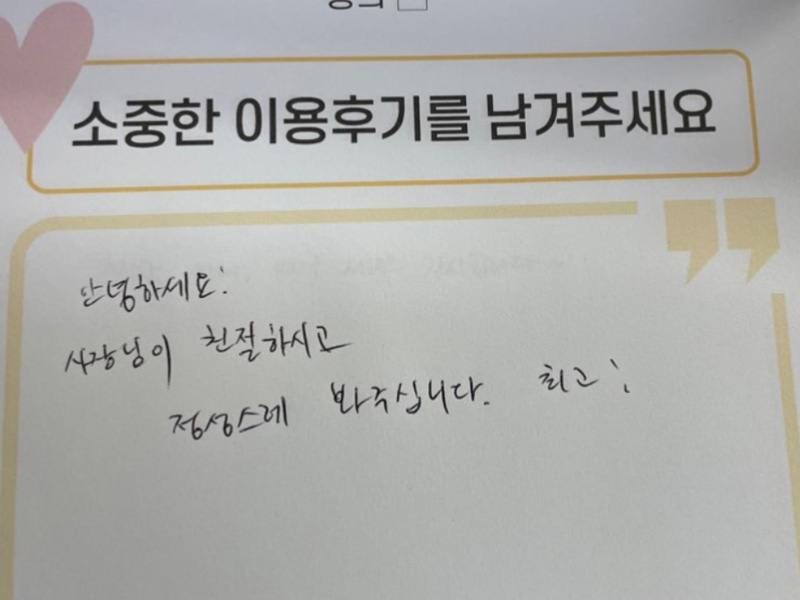 동의 □
소중한 이용후기를 남겨주세요
안녕하세요!
사장님이 친절하시고
정성스레 봐주십니다. 최고!